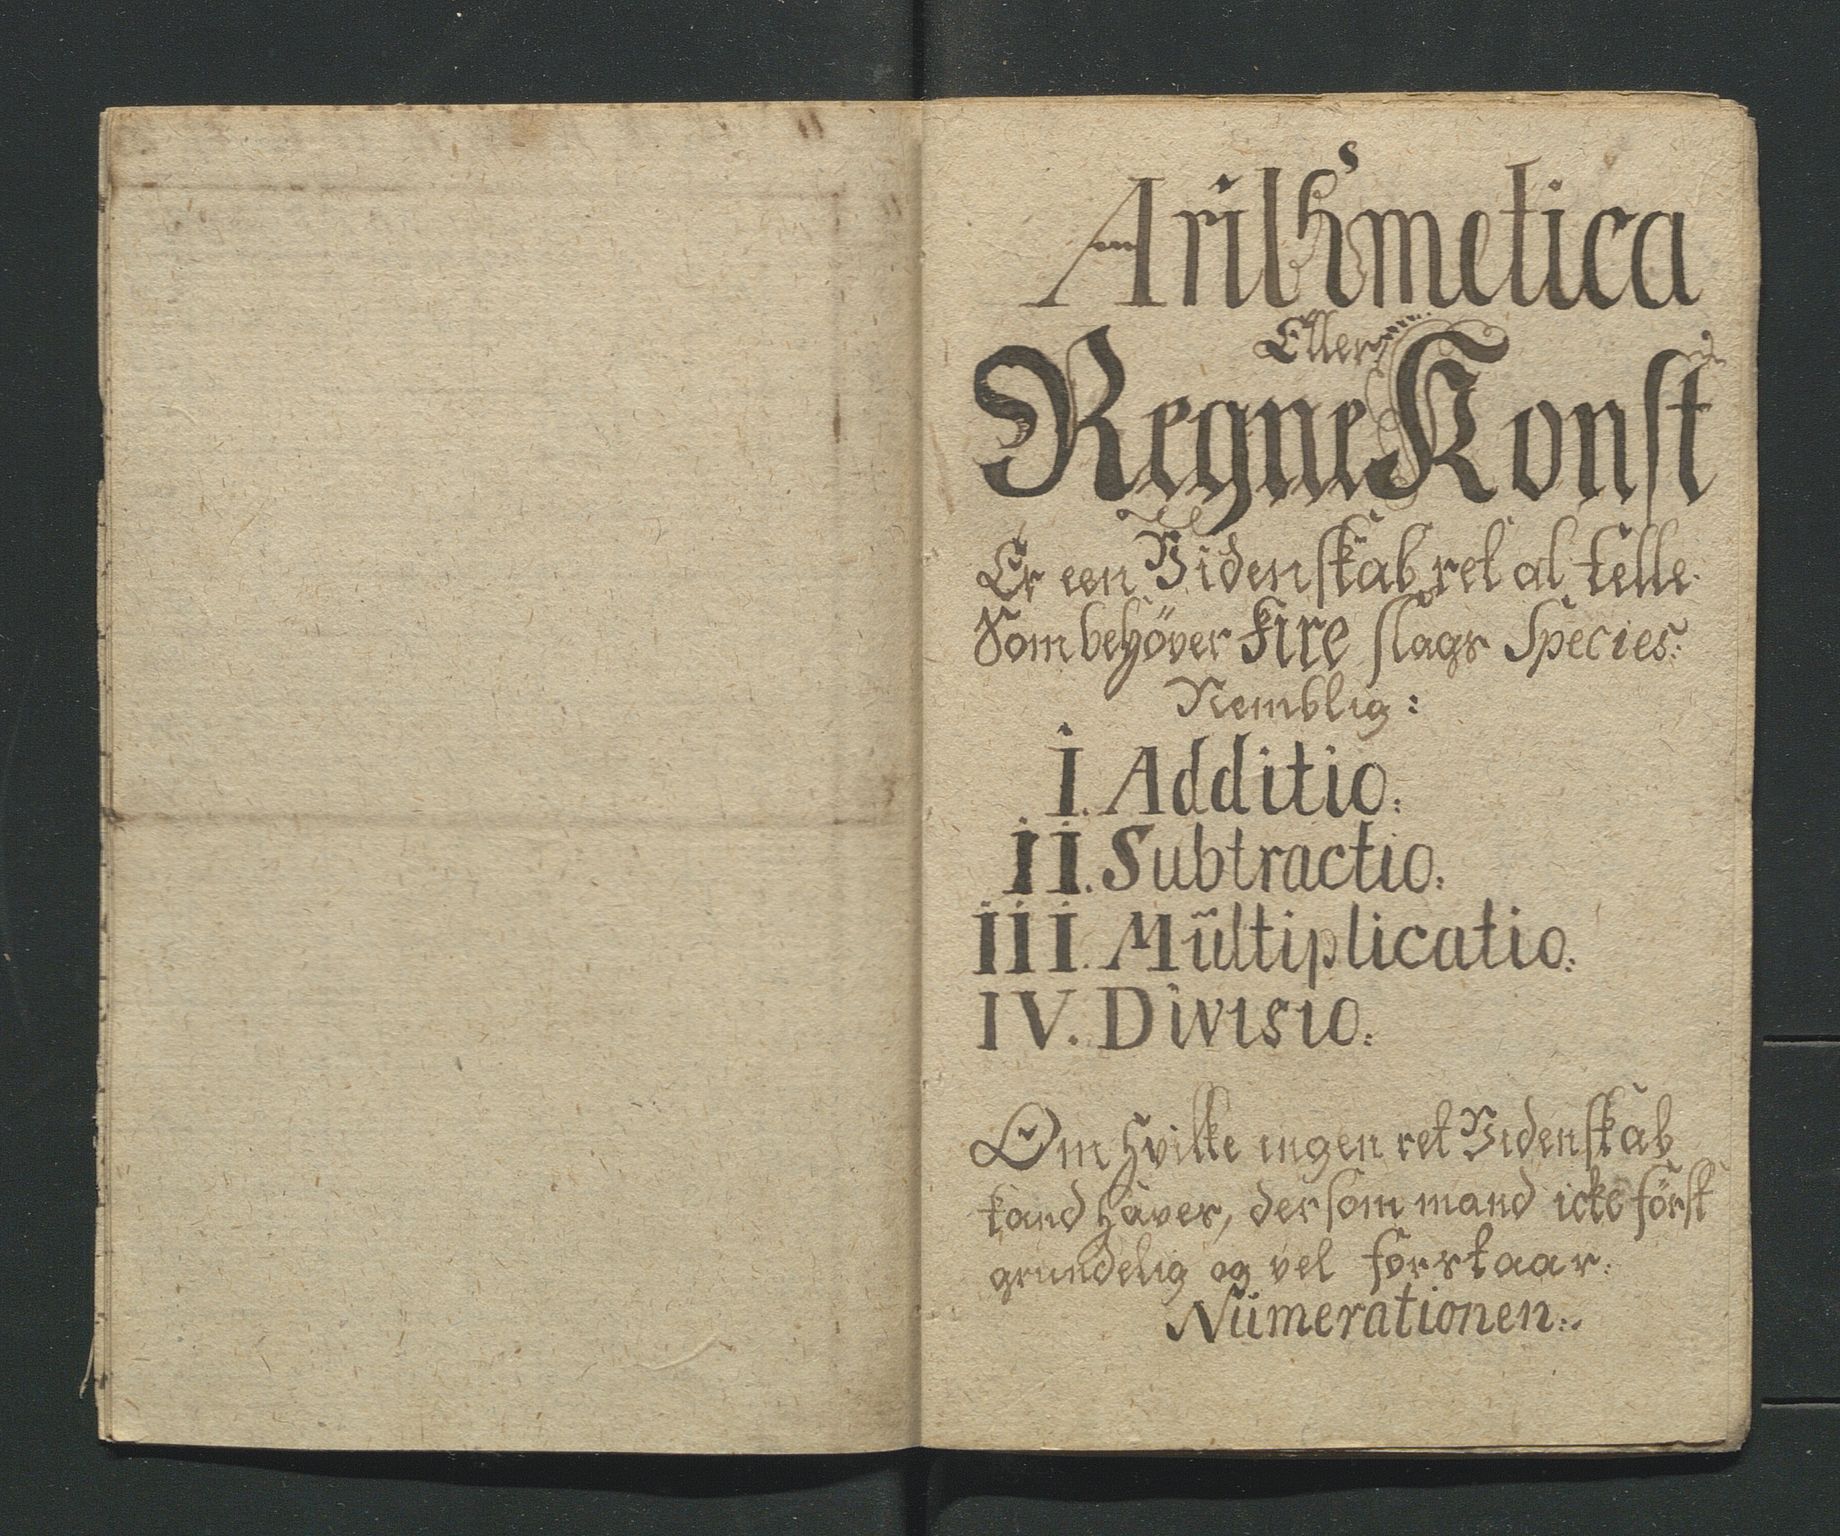 Arithmetica
Eller
Regne Konst
Er een Videnskab ret at telle.
Som behöver fire slags Species:
Nemblig:
I. Additio:
II. Subtractio:
III. Mültiplicatio:
IV. Divisio:
Om hvilke ingen ret Videnskab
kand haves, dersom mand icke först
grundelig og vel forstaar:
Nümerationen:.